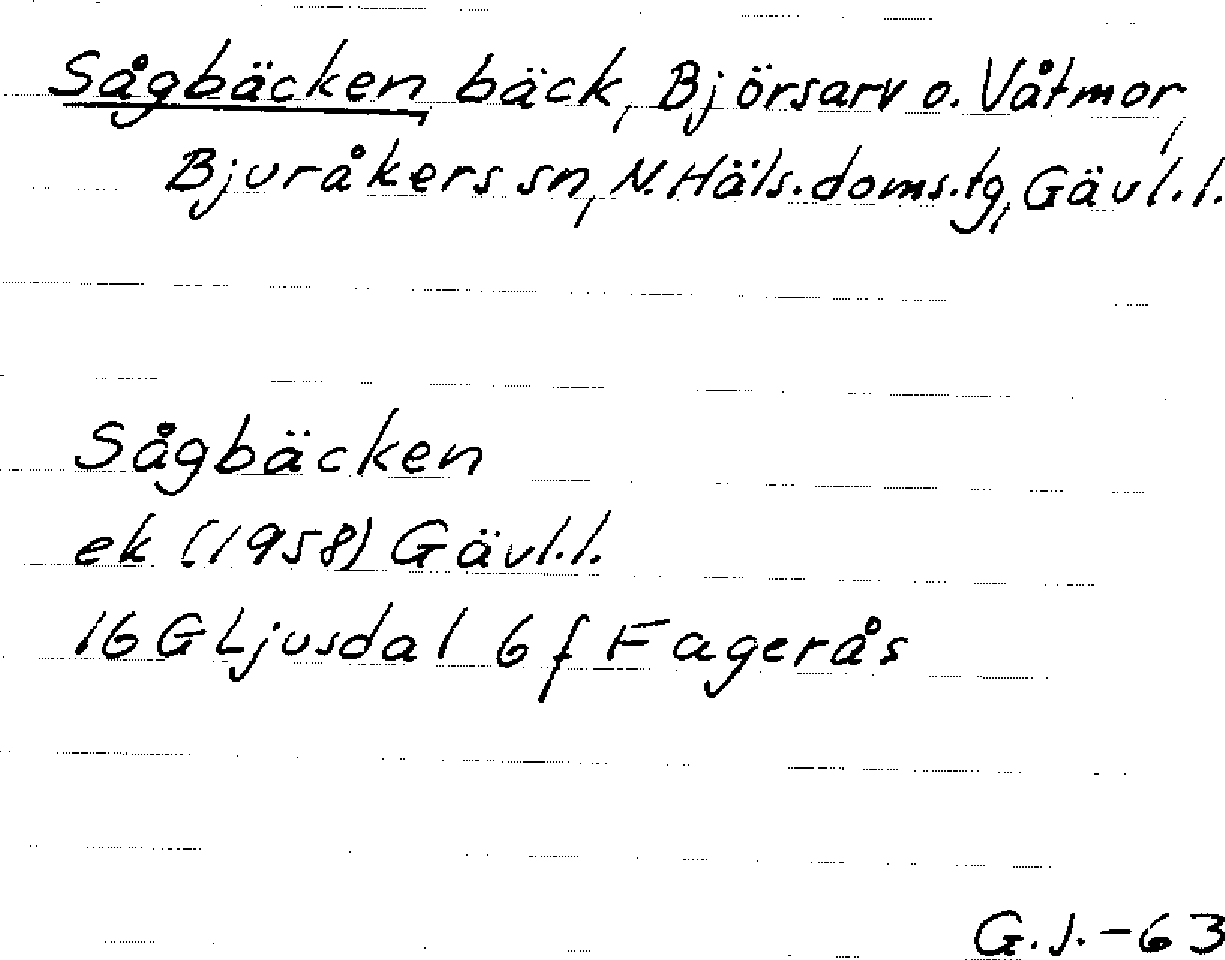 Sågbäcken bäck, Björsarv o. Våtmor,
Bjuråkers sn, N. Häls. doms. tg, Gävl. l.
Sågbäcken
ek (1958) Gävl. l.
16 G Ljusdal 6 f Fagerås
G. J. -63